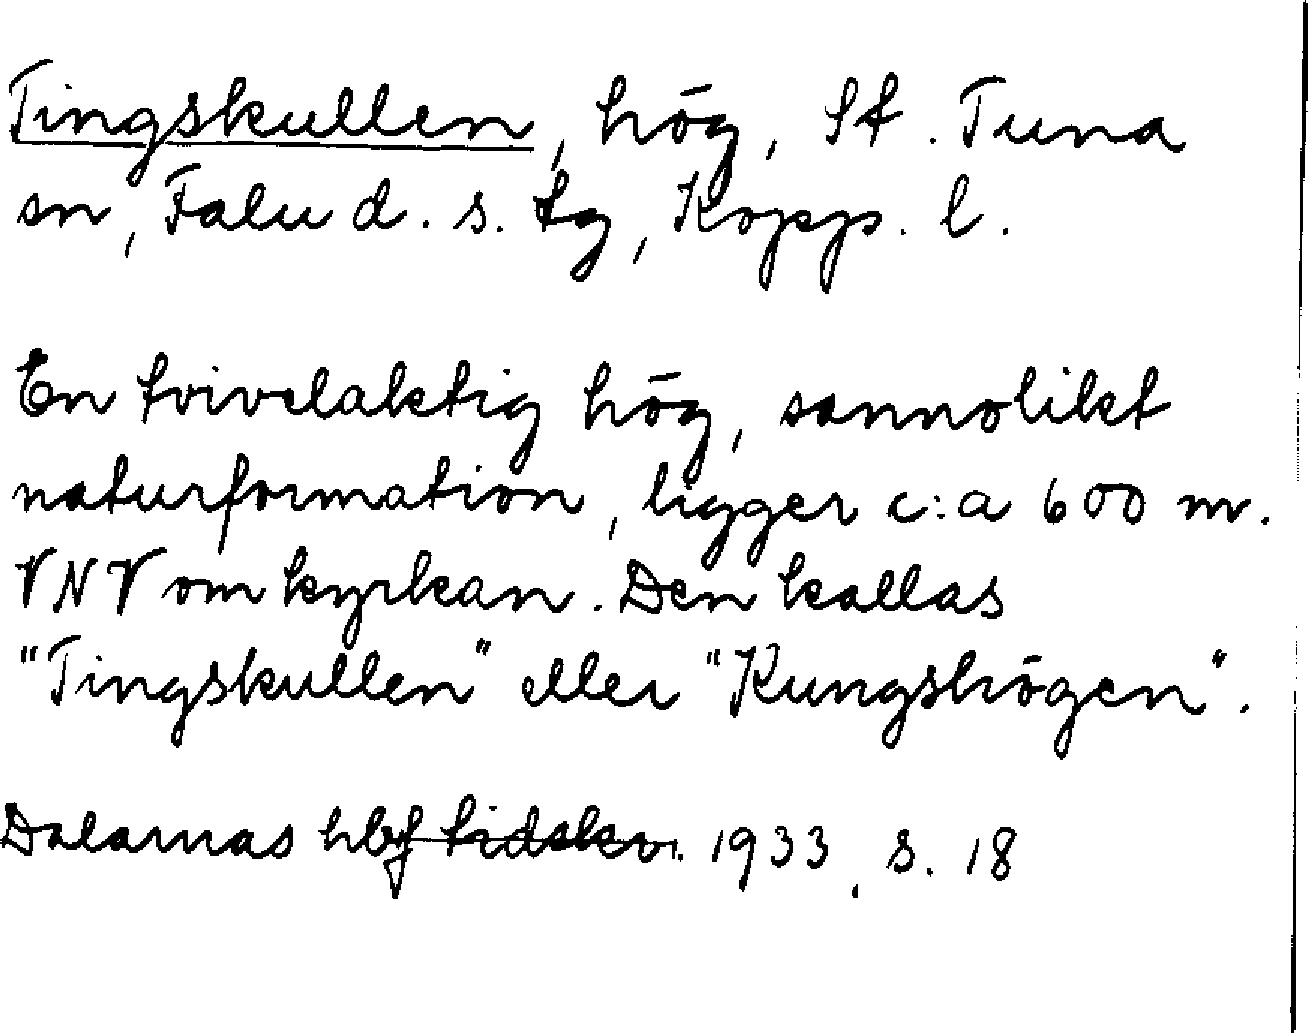 Tingskullen, hög, St. Tuna
sn, Falu d. s. tg, Kopp. l.
En tvivelaktig hög, sannolikt
naturformation, ligger c:a 600 m.
VNV om kyrkan. Den kallas
"Tingskullen" eller "Kungshögen".
Dalarnas hbf tidskr. 1933, s. 18